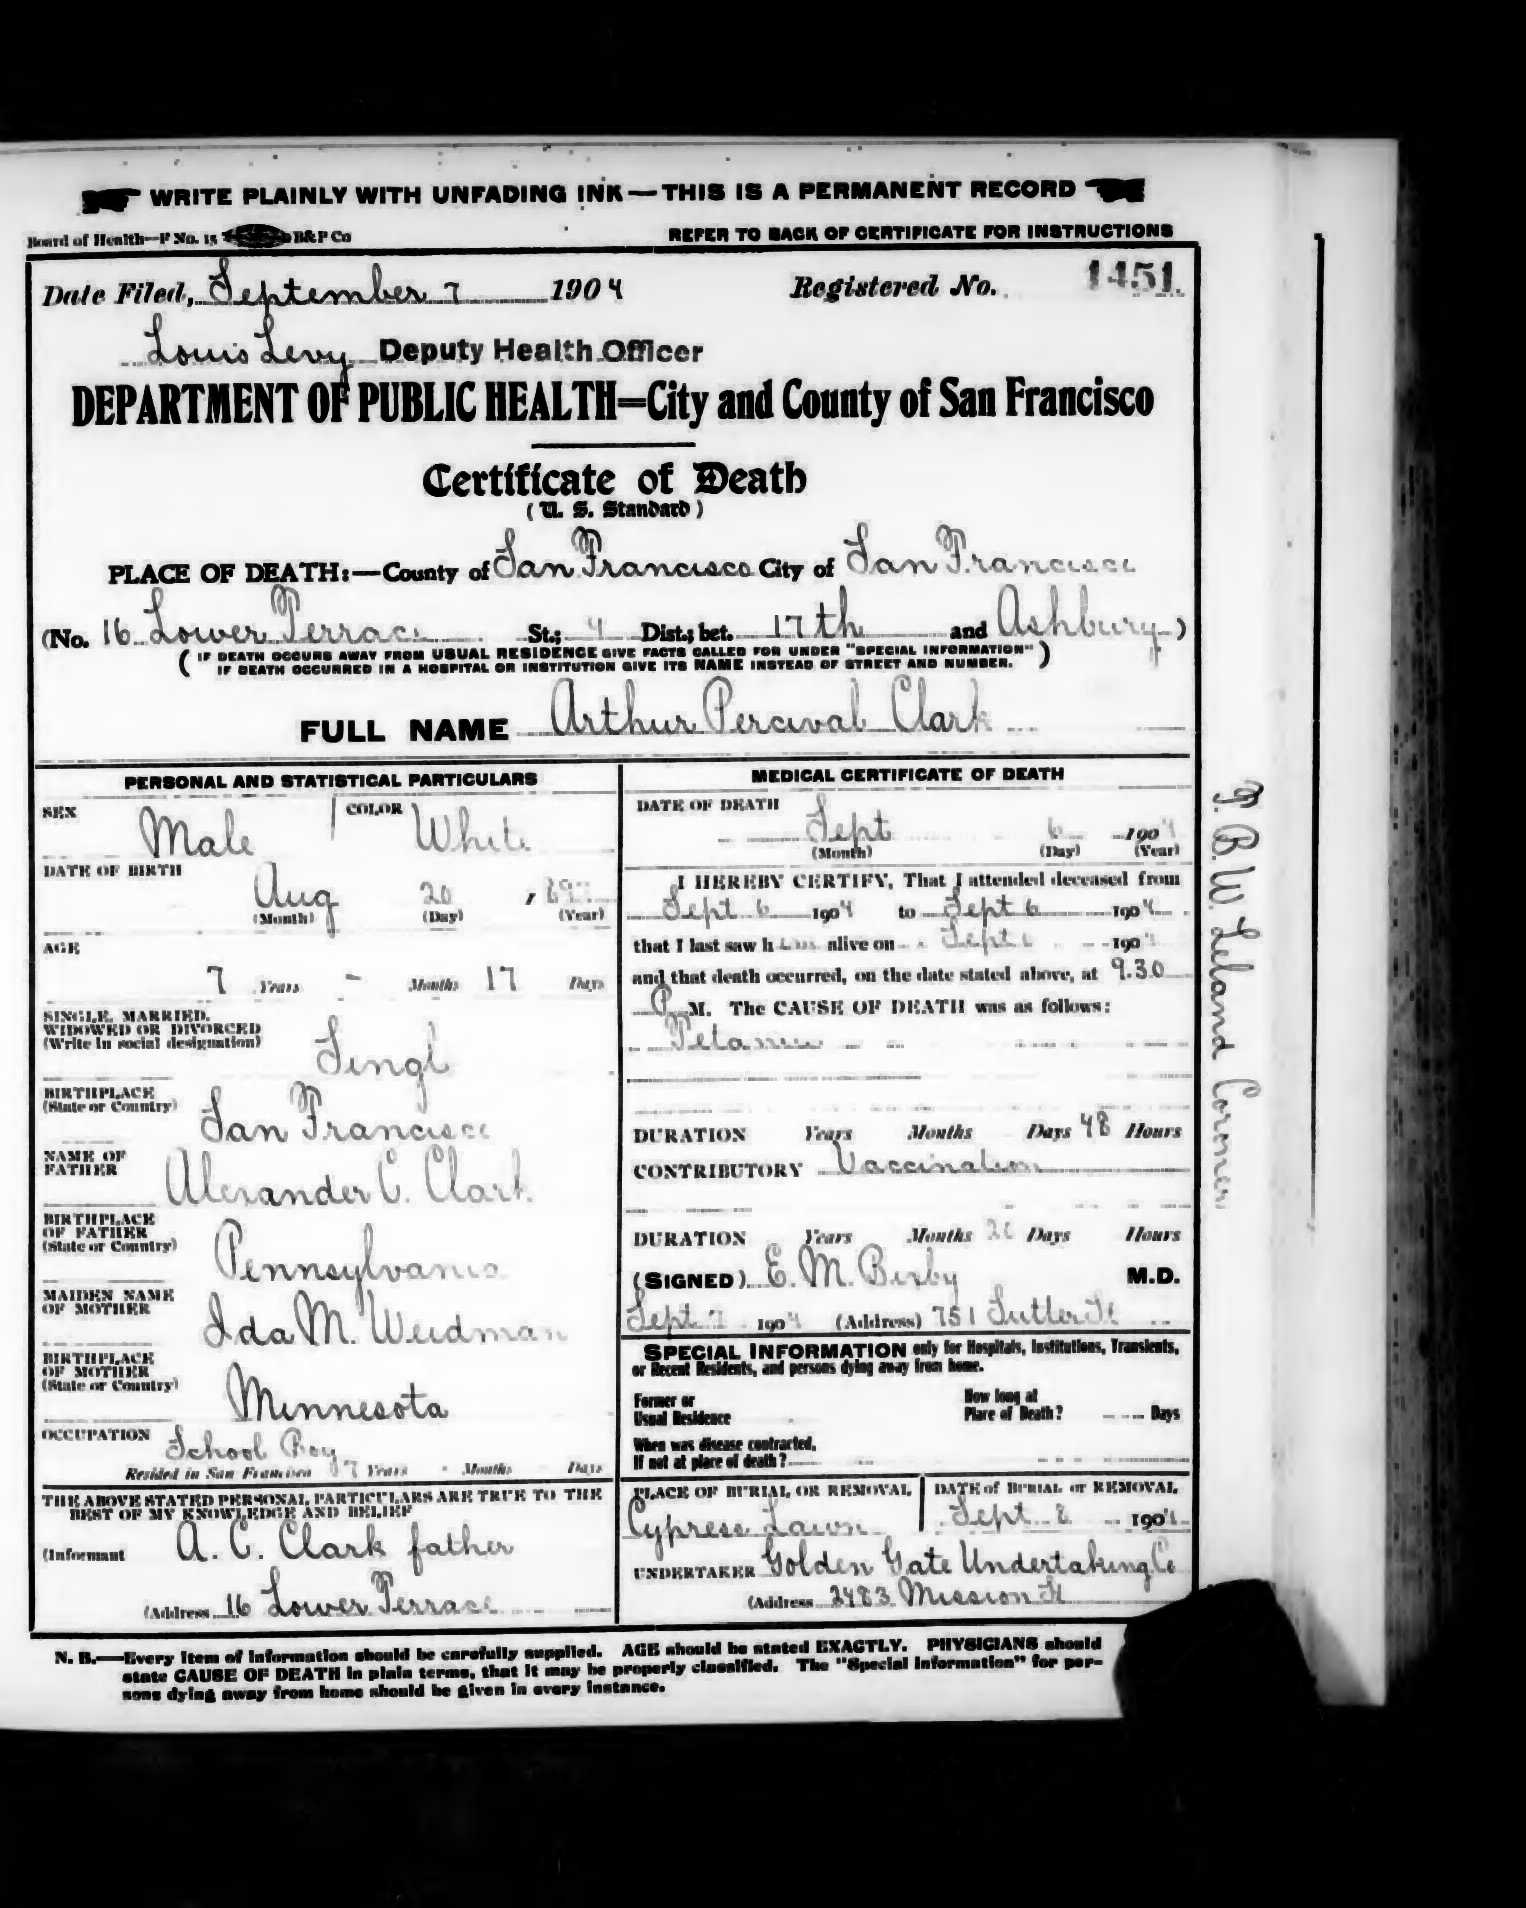 WRITE PLAINLY WITH UNFADING INK — THIS IS A PERMANENT RECORD
Board of Health—F No. 15 B&P Co
REFER TO BACK OF CERTIFICATE FOR INSTRUCTIONS
Date Filed, September 7 1904 Registered No. 1451
Louis Levy Deputy Health Officer
DEPARTMENT OF PUBLIC HEALTH=City and County of San Francisco
Certificate of Death
( U. S. Standard )
PLACE OF DEATH:—County of San Francisco City of San Francisco
(No. 16 Lower Terrace St.; 4 Dist.; bet. 17th and Ashbury )
( IF DEATH OCCURS AWAY FROM USUAL RESIDENCE GIVE FACTS CALLED FOR UNDER "SPECIAL INFORMATION"
IF DEATH OCCURRED IN A HOSPITAL OR INSTITUTION GIVE ITS NAME INSTEAD OF STREET AND NUMBER. )
FULL NAME Arthur Percival Clark
PERSONAL AND STATISTICAL PARTICULARS
SEX Male COLOR White
DATE OF BIRTH
Aug 20 , 897
(Month) (Day) (Year)
AGE
7 Years - Months 17 Days
SINGLE, MARRIED,
WIDOWED OR DIVORCED
(Write in social designation)
Singl
BIRTHPLACE
(State or Country)
San Francisco
NAME OF
FATHER
Alexander C. Clark
BIRTHPLACE
OF FATHER
(State or Country)
Pennsylvania
MAIDEN NAME
OF MOTHER
Ida M. Weidman
BIRTHPLACE
OF MOTHER
(State or Country)
Minnesota
OCCUPATION School Boy
Resided in San Francisco 7 Years Months Days
THE ABOVE STATED PERSONAL PARTICULARS ARE TRUE TO THE
BEST OF MY KNOWLEDGE AND BELIEF
(Informant A. C. Clark father
(Address 16 Lower Terrace
MEDICAL CERTIFICATE OF DEATH
DATE OF DEATH
Sept 6 1904
(Month) (Day) (Year)
I HEREBY CERTIFY, That I attended deceased from
Sept 6 1904 to Sept 6 1904
that I last saw him alive on Sept 6 1904
and that death occurred, on the date stated above, at 9.30
P M. The CAUSE OF DEATH was as follows:
Tetanus
DURATION Years Months Days 48 Hours
CONTRIBUTORY Vaccination
DURATION Years Months 20 Days Hours
(SIGNED) E. M. Bixby M.D.
Sept 7 1904 (Address) 751 Sutter St
SPECIAL INFORMATION only for Hospitals, Institutions, Transients,
or Recent Residents, and persons dying away from home.
Former or
Usual Residence
How long at
Place of Death? Days
When was disease contracted,
If not at place of death?
PLACE OF BURIAL OR REMOVAL
Cypress Lawn
DATE of BURIAL or REMOVAL
Sept 8 1904
UNDERTAKER Golden Gate Undertaking Co
(Address 2483 Mission St
N. B.—Every item of information should be carefully supplied. AGE should be stated EXACTLY. PHYSICIANS should
state CAUSE OF DEATH in plain terms, that it may be properly classified. The "Special Information" for per-
sons dying away from home should be given in every instance.
T. B. W. Leland Coroner